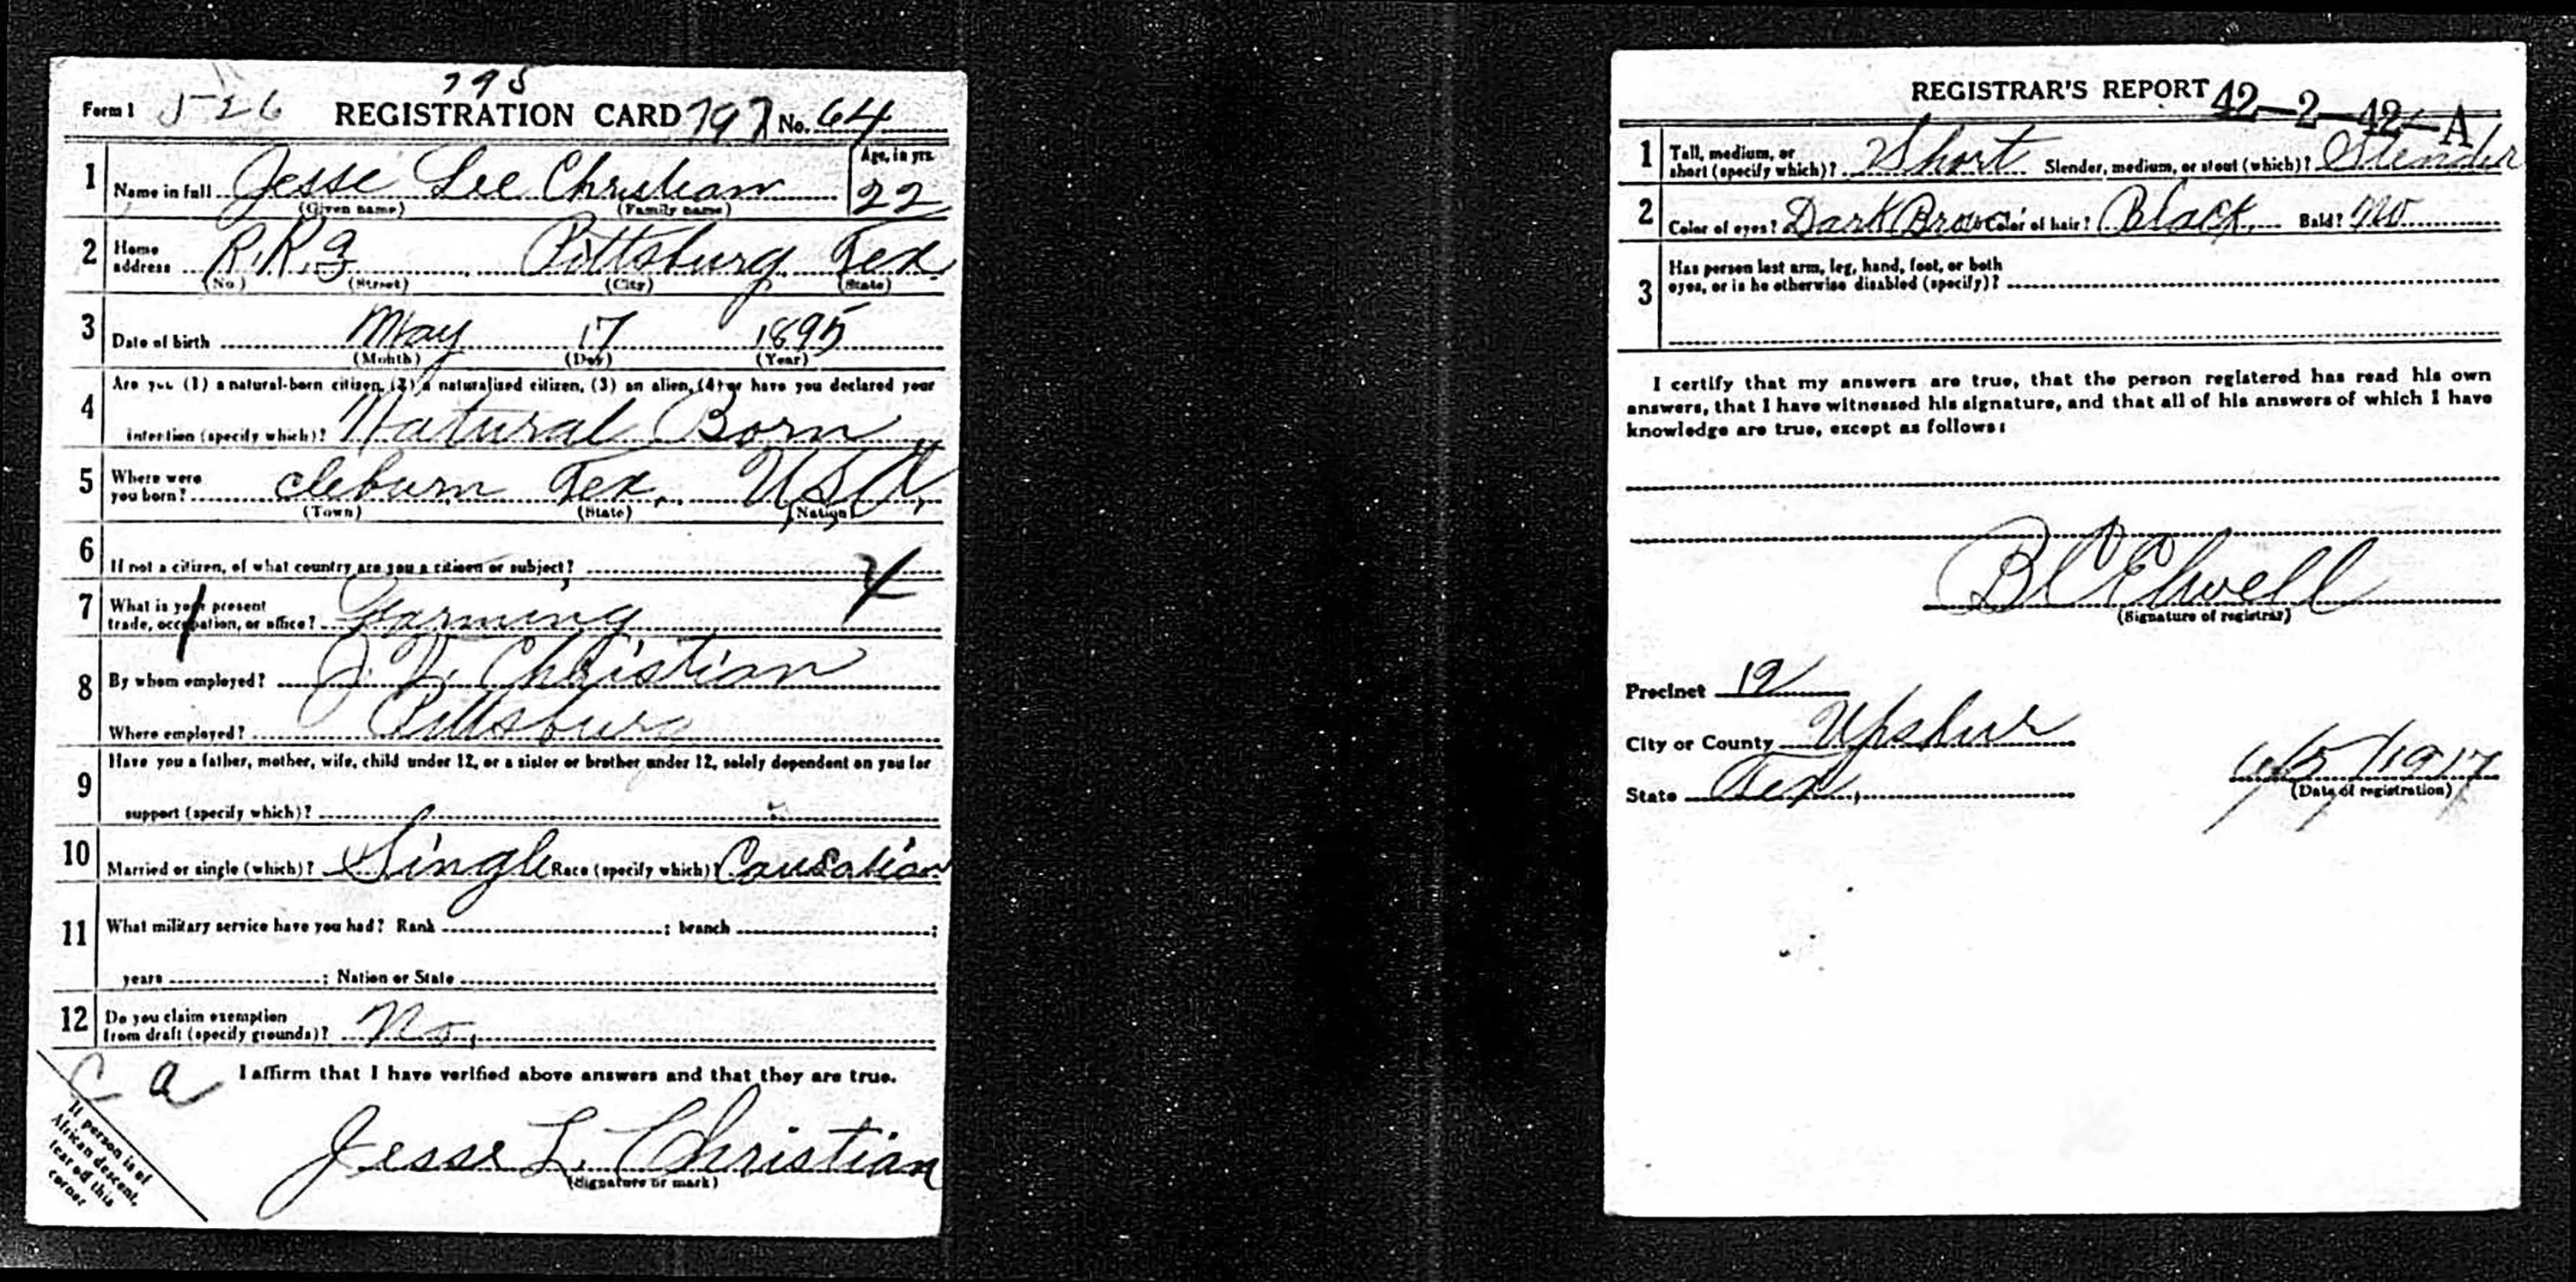 795
Form 1 526 REGISTRATION CARD 797 No. 64
1 Name in full Jesse Lee Christian Age, in yrs. 22
(Given name) (Family name)
2 Home address R.R.3 Pittsburg Tex.
(No.) (Street) (City) (State)
3 Date of birth May 17 1895
(Month) (Day) (Year)
4 Are you (1) a natural-born citizen, (2) a naturalized citizen, (3) an alien, (4) or have you declared your
intention (specify which)? Natural Born
5 Where were you born? Cleburn Tex. U.S.A.
(Town) (State) (Nation)
6 If not a citizen, of what country are you a citizen or subject?
7 What is your present
trade, occupation, or office? Farming
8 By whom employed? Christian
Where employed? Pittsburg
9 Have you a father, mother, wife, child under 12, or a sister or brother under 12, solely dependent on you for
support (specify which)?
10 Married or single (which)? Single Race (specify which)? Causatian
11 What military service have you had? Rank ; branch ;
years ; Nation or State
12 Do you claim exemption
from draft (specify grounds)? No.
C a I affirm that I have verified above answers and that they are true.
If person is of
African descent,
tear off this
corner
Jesse L. Christian
(Signature or mark)
REGISTRAR'S REPORT 42-2-42-A
1 Tall, medium, or
short (specify which)? Short Slender, medium, or stout (which)? Slender
2 Color of eyes? Dark Brown Color of hair? Black Bald? No
3 Has person lost arm, leg, hand, foot, or both
eyes, or is he otherwise disabled (specify)?
I certify that my answers are true, that the person registered has read his own
answers, that I have witnessed his signature, and that all of his answers of which I have
knowledge are true, except as follows:
B C Elwell
(Signature of registrar)
Precinct 12
City or County Upshur
State Tex. 6/5/1917
(Date of registration)